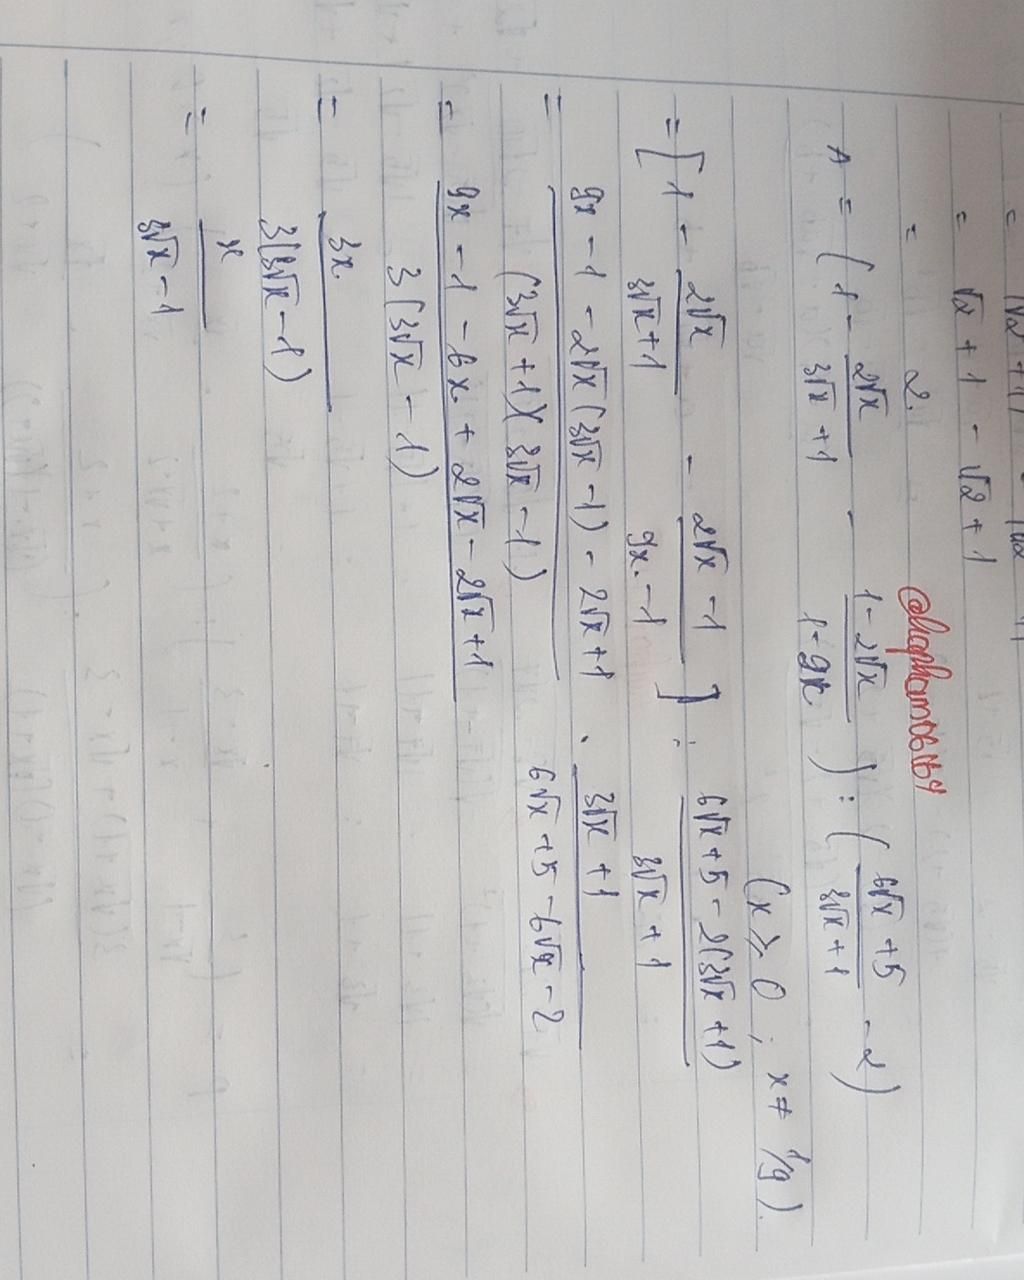 = √2 + 1 - √2 + 1
= 2.
@hapham061184
A = ( 1 - 2√x / 3√x + 1 - 1 - 2√x / 1 - 9x ) : ( 6√x + 5 / 3√x + 1 - 2 )
(x ≥ 0 ; x ≠ 1/9).
= [ 1 - 2√x / 3√x + 1 - 2√x - 1 / 9x - 1 ] : 6√x + 5 - 2(3√x + 1) / 3√x + 1
= 9x - 1 - 2√x (3√x - 1) - 2√x + 1 / (3√x + 1)(3√x - 1) . 3√x + 1 / 6√x + 5 - 6√x - 2
= 9x - 1 - 6x + 2√x - 2√x + 1 / 3(3√x - 1)
= 3x / 3(3√x - 1)
= x / 3√x - 1